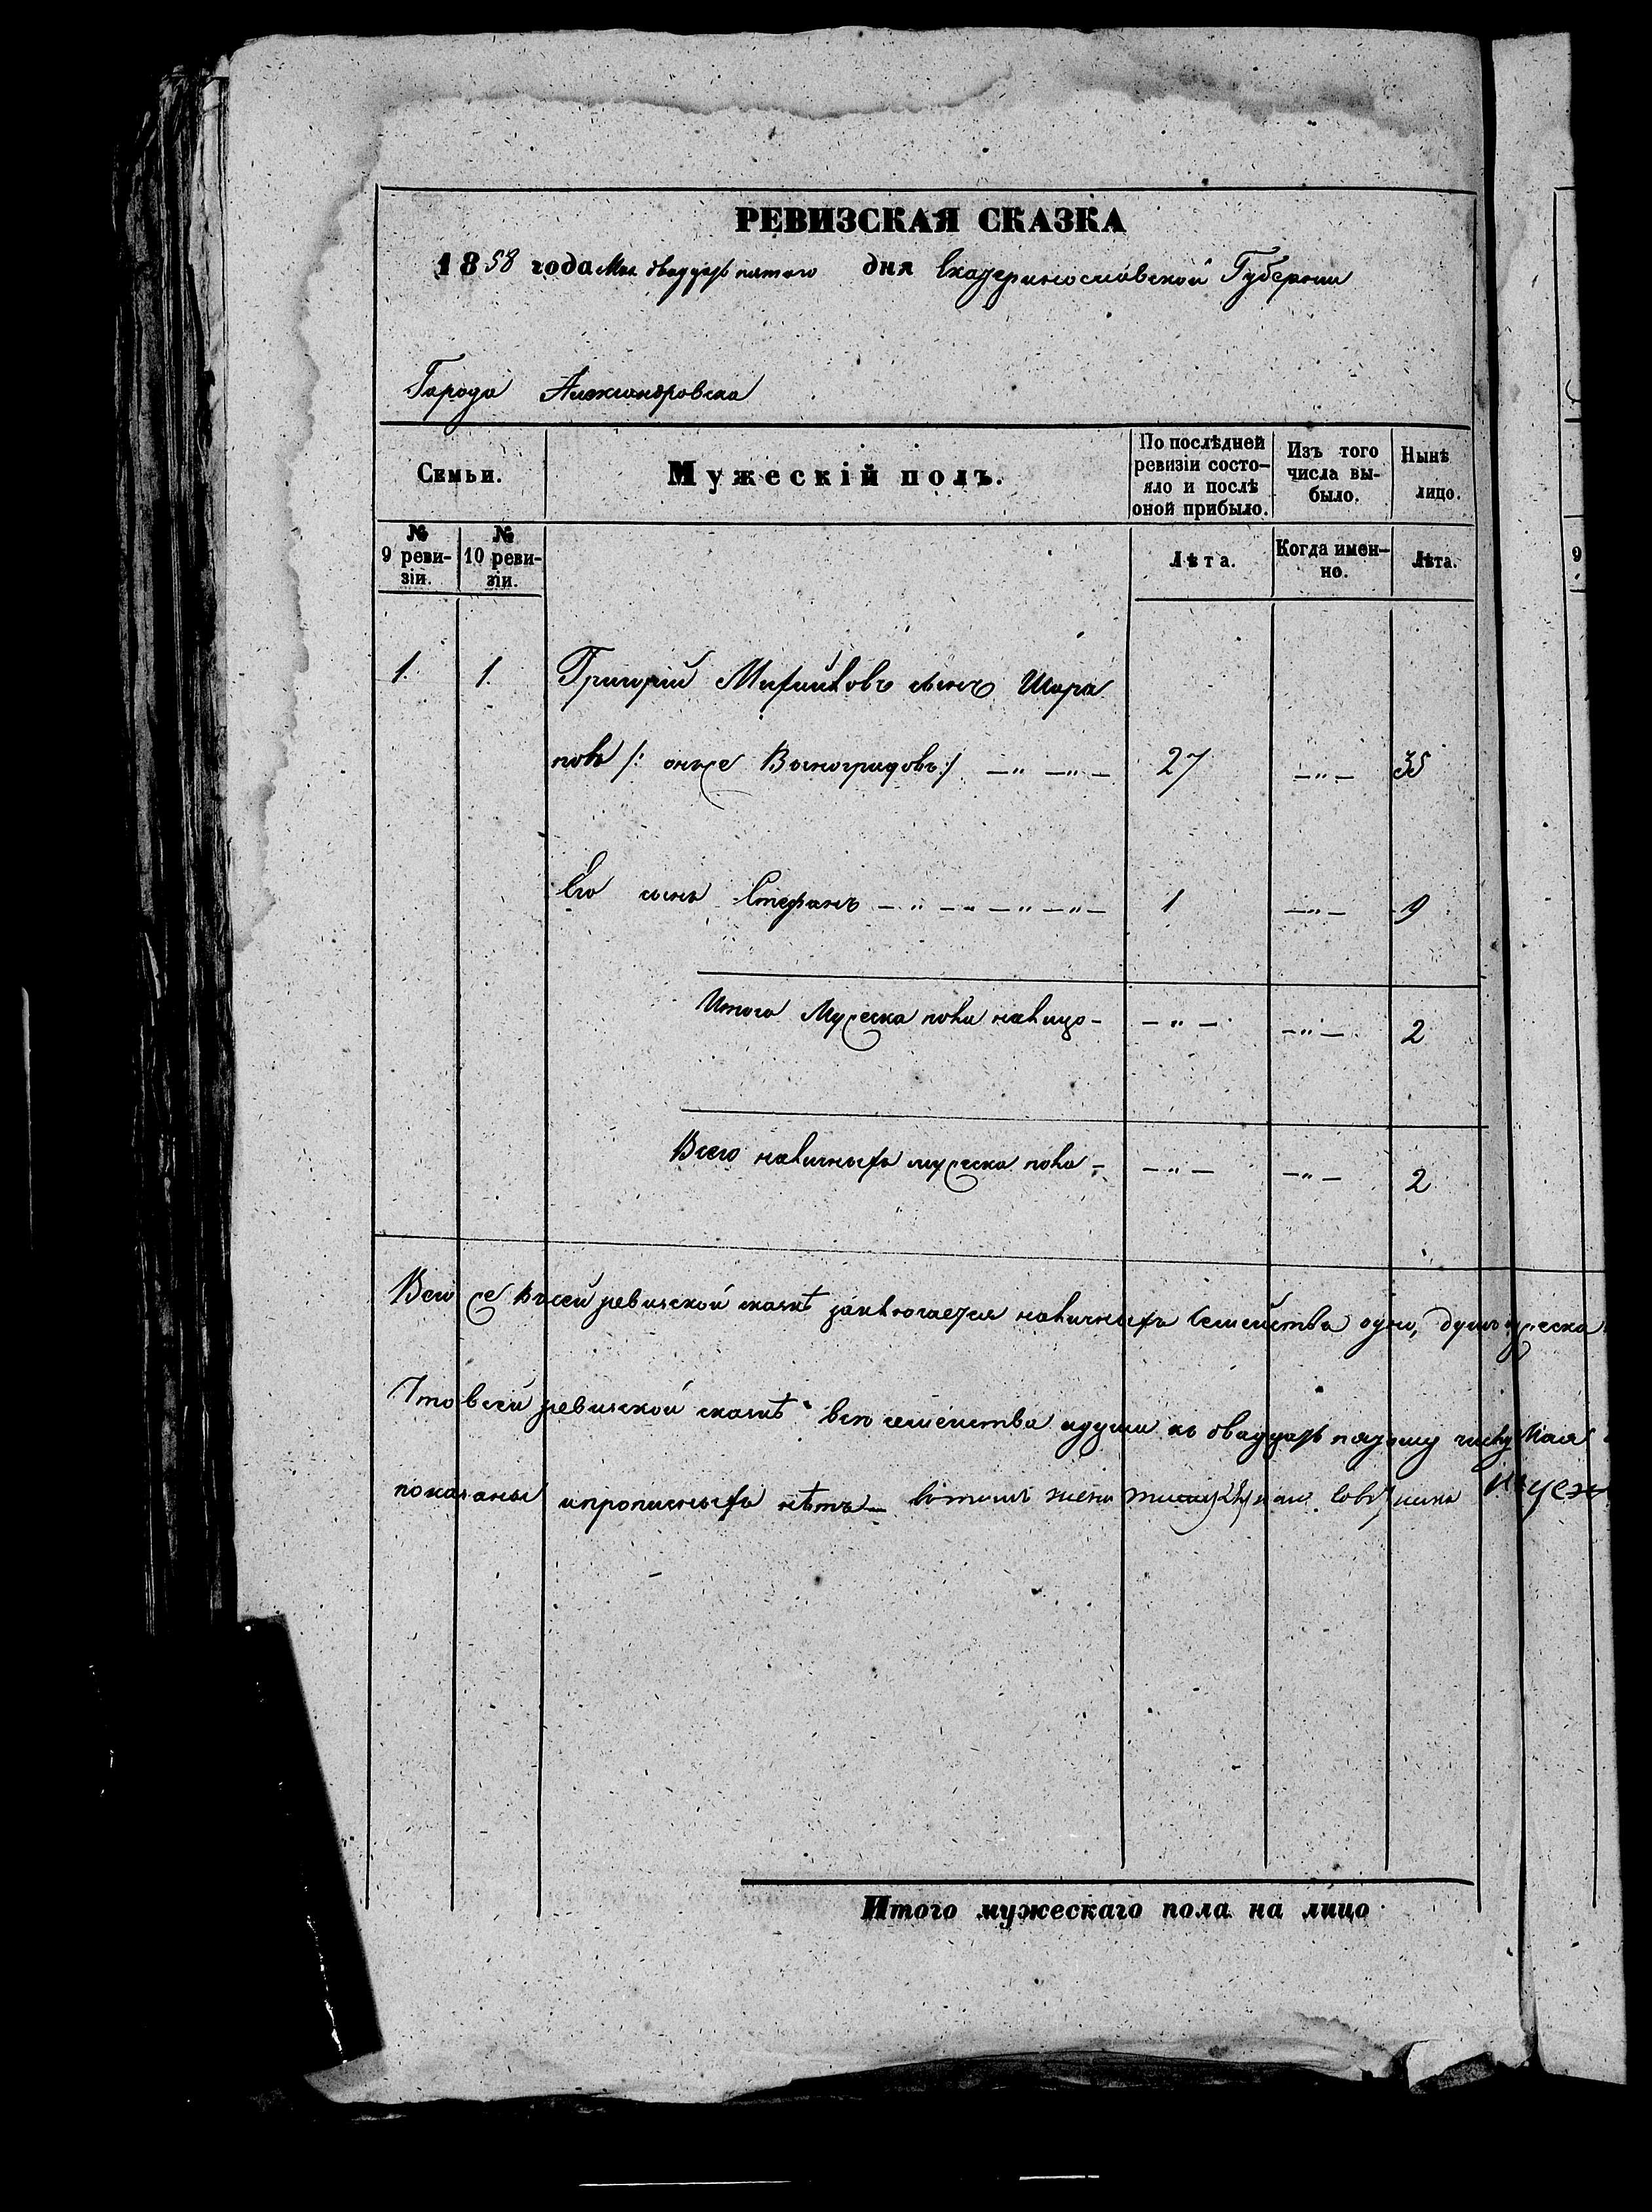 РЕВИЗСКАЯ СКАЗКА
1858 года Мая двадцать пятого дня Екатеринославской Губернии
Города Александровска
Семьи.
Мужескій полъ.
По послѣдней ревизіи состо-
яло и послѣ
оной прибыло.
Изъ того
числа вы-
было.
Нынѣ
лицо.
№
9 реви-
зіи.
№
10 реви-
зіи.
Лѣта.
Когда имен-
но.
Лѣта.
9
1. 1. Григорій Михайловъ сынъ Шара
повъ /: онже Виноградовъ :/ —„— —„— 27 —„— 35
Его сынъ Стефанъ —„— —„— —„— 1 —„— 9
Итого Мужеска пола налицо — —„— —„— 2
Всего наличныхъ мужеска пола — —„— —„— 2
Всего же въ сей ревизской сказкѣ заключается наличныхъ семейства одно, душъ мужеска
Что в сей ревизской сказкѣ все семейства и души къ двадцать пятому числу Мая
показаны и прописныхъ нѣтъ —
Итого мужескаго пола на лицо